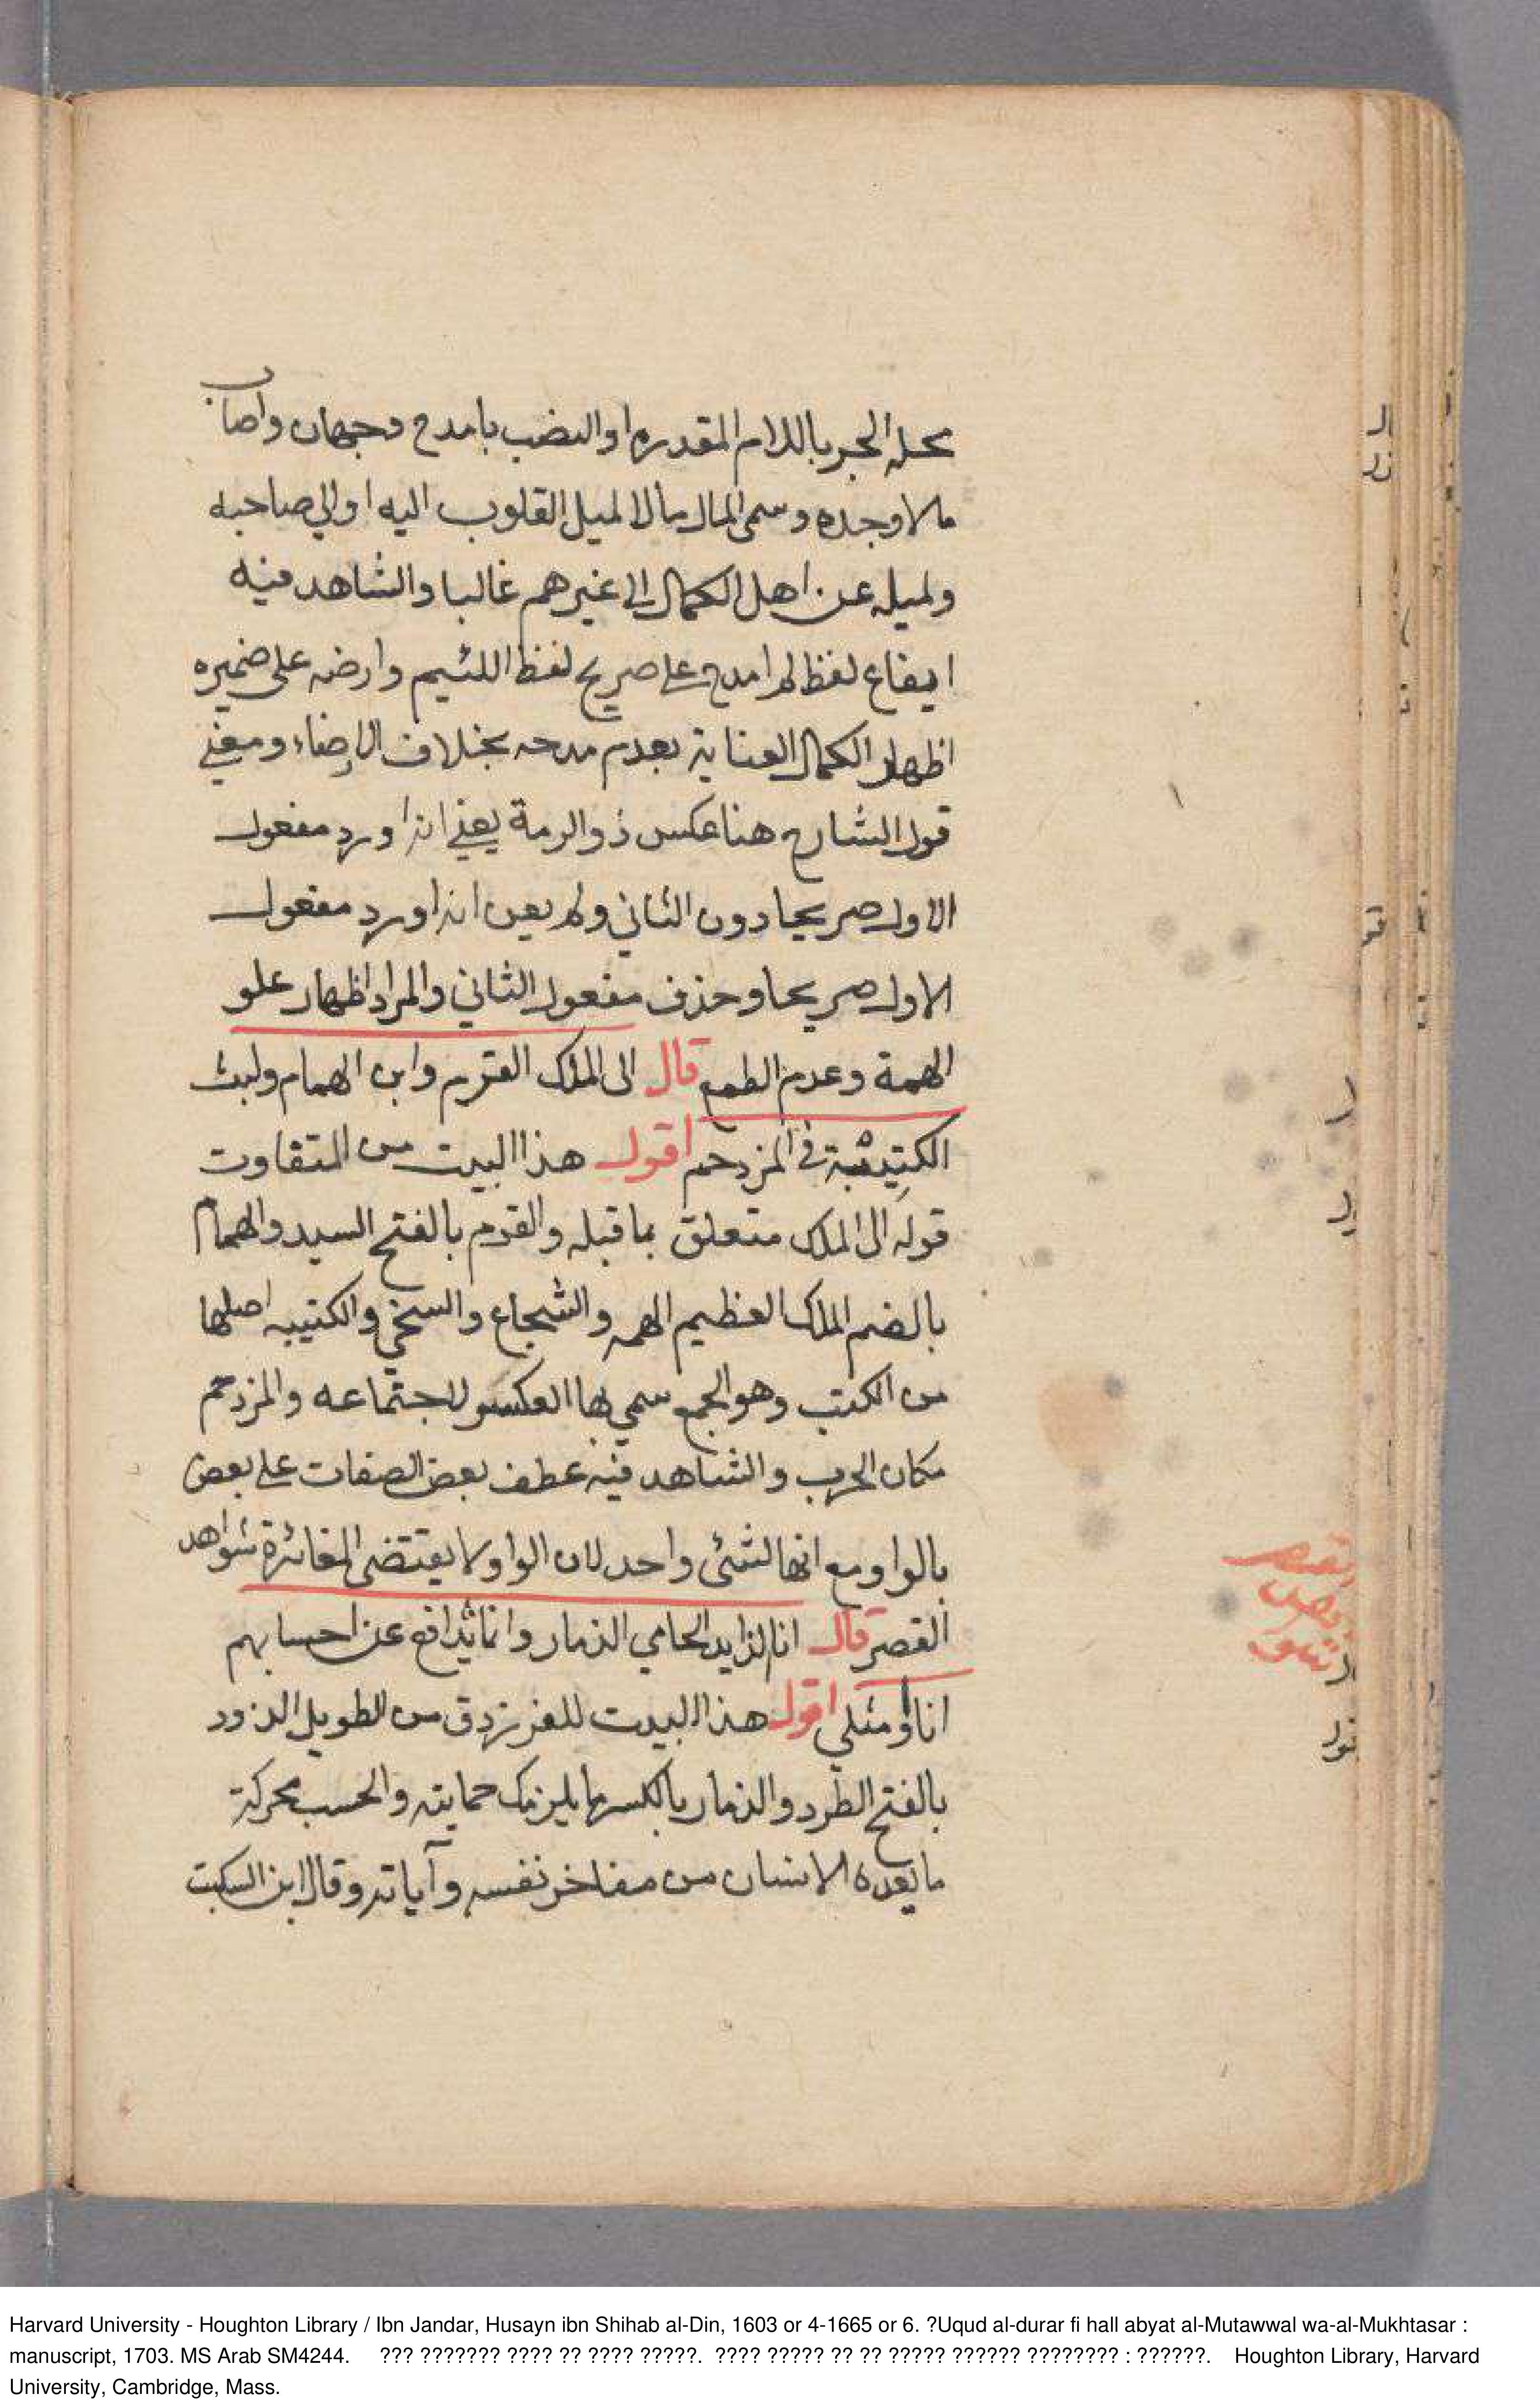 محله الجر باللام المقدره او النصب بامدح وجهان واصاب
مالا وجده وسمى المال مالا لميل القلوب اليه او الى صاحبه
ولميله عن اهل الكمال الى غيرهم غالبا والشاهد فيه
ايقاع لفظ لم امدح على صريح لفظ اللئيم وارضه على ضميره
اظهار الكمال العناية بعدم مدحه بخلاف الارضاء ومعنى
قول الشارح هنا عكس ذو الرمة يعني انه اورد مفعول
الاول صريحا دون الثاني ولم يعن انه اورد مفعول
الاول صريحا وحذف مفعول الثاني والمراد اظهار علو
الهمة وعدم الطمع قال الى الملك القرم وابن الهمام وليث
الكتيبة في المزدحم اقول هذا البيت من المتقاوت
قوله الى الملك متعلق بما قبله والقرم بالفتح السيد والهمام
بالضم الملك العظيم الهمه والشجاع والسخي والكتيبه اصلها
من الكتب وهو الجمع سمي بها العكسو لاجتماعه والمزدحم
مكان الحرب والشاهد فيه عطف بعض الصفات على بعض
بالواو مع انها لشئى واحد لان الواو لا يقتضى المغائرة شواهد
القصر قال انا الذايد الحامي الذمار وانما يدافع عن احسابهم
انا او مثلي اقول هذا البيت للفرزدق من الطويل الذود
بالفتح الطرد والذمار بالكسر ما يلزمك حمايته والحسب محركة
ما يعده الانسان من مفاخر نفسه وآياته وقال ابن السكيت
Harvard University - Houghton Library / Ibn Jandar, Husayn ibn Shihab al-Din, 1603 or 4-1665 or 6. ?Uqud al-durar fi hall abyat al-Mutawwal wa-al-Mukhtasar :
manuscript, 1703. MS Arab SM4244. ??? ??????? ???? ?? ???? ?????. ???? ????? ?? ?? ????? ?????? ???????? : ??????. Houghton Library, Harvard
University, Cambridge, Mass.